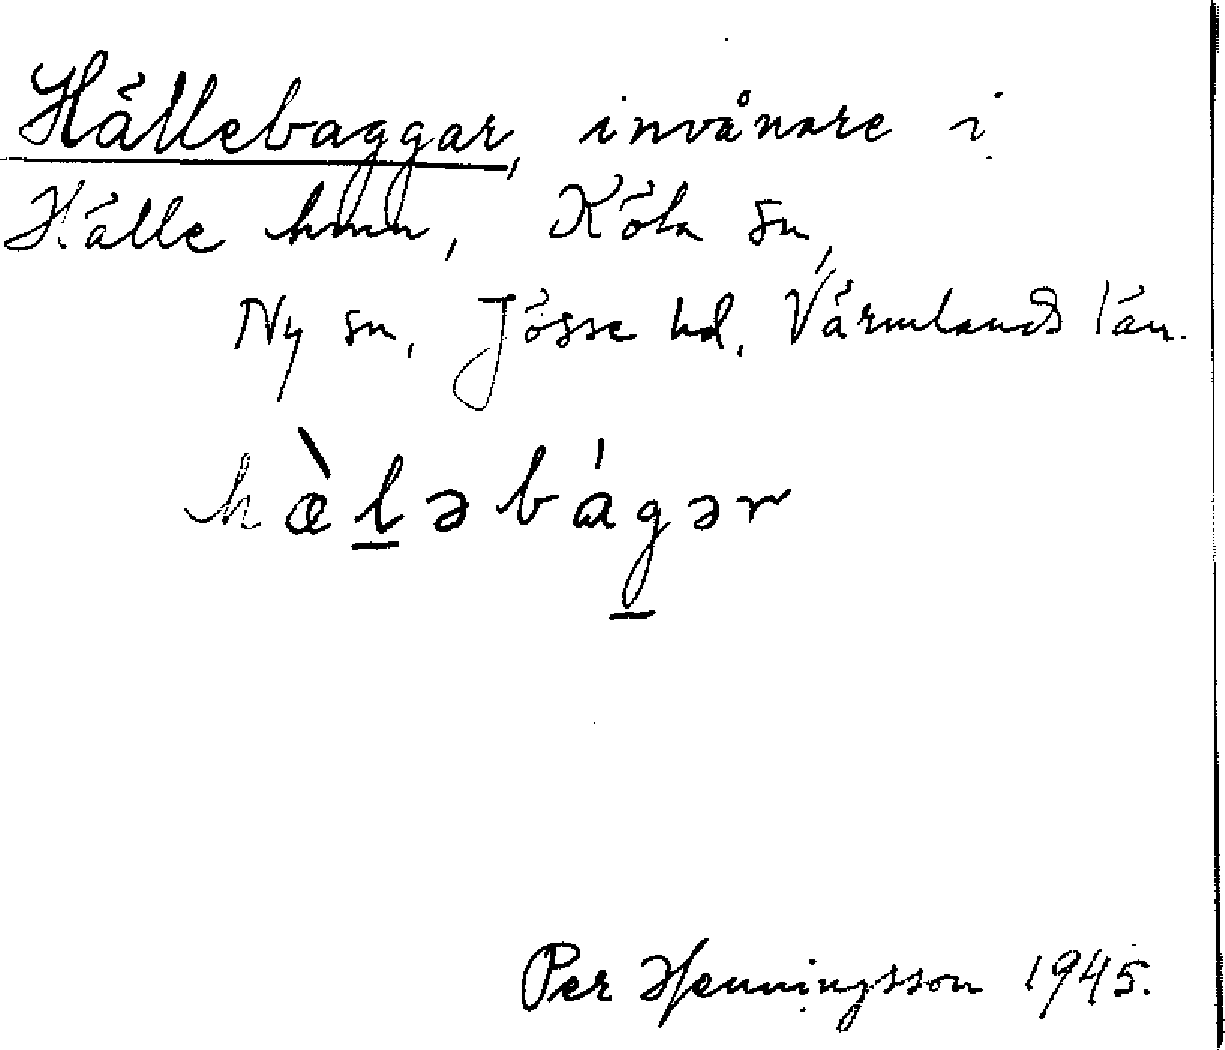 Hällebaggar, invånare i
Hälle hmn, Köla sn,
Ny sn, Jösse hd, Värmlands län.
hæ̀l̲əbág̲ər
Per Henningsson 1945.